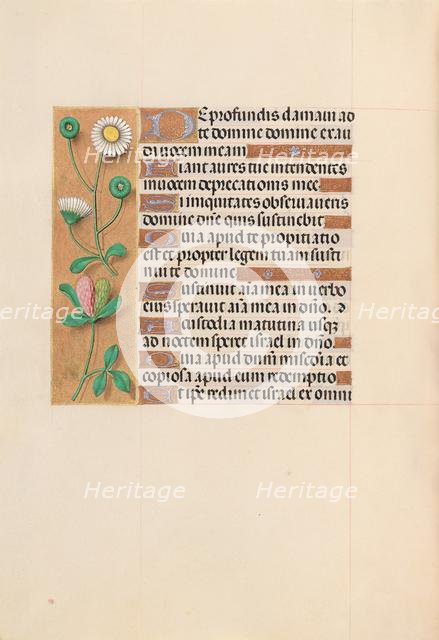 De profundis clamaui ad
te domine domine exau
di uocem meam
Fiant aures tue intendentes
in uocem deprecationis mee
Si iniquitates obseruaueris
domine dn̄e quis sustinebit
Quia apud te propitiatio
est et propter legem tuam susti
nui te domine
Sustinuit aīa mea in uerbo
eius sperauit aīa mea in dn̄o.
A custodia matutina usq̄
ad noctem speret israel in dn̄o.
Quia apud dnūm mīa et
copiosa apud eum redemptio
Et ipe redimet israel ex omni
Heritage
Heritage
Heritage
Heritage
Heritage
Heritage